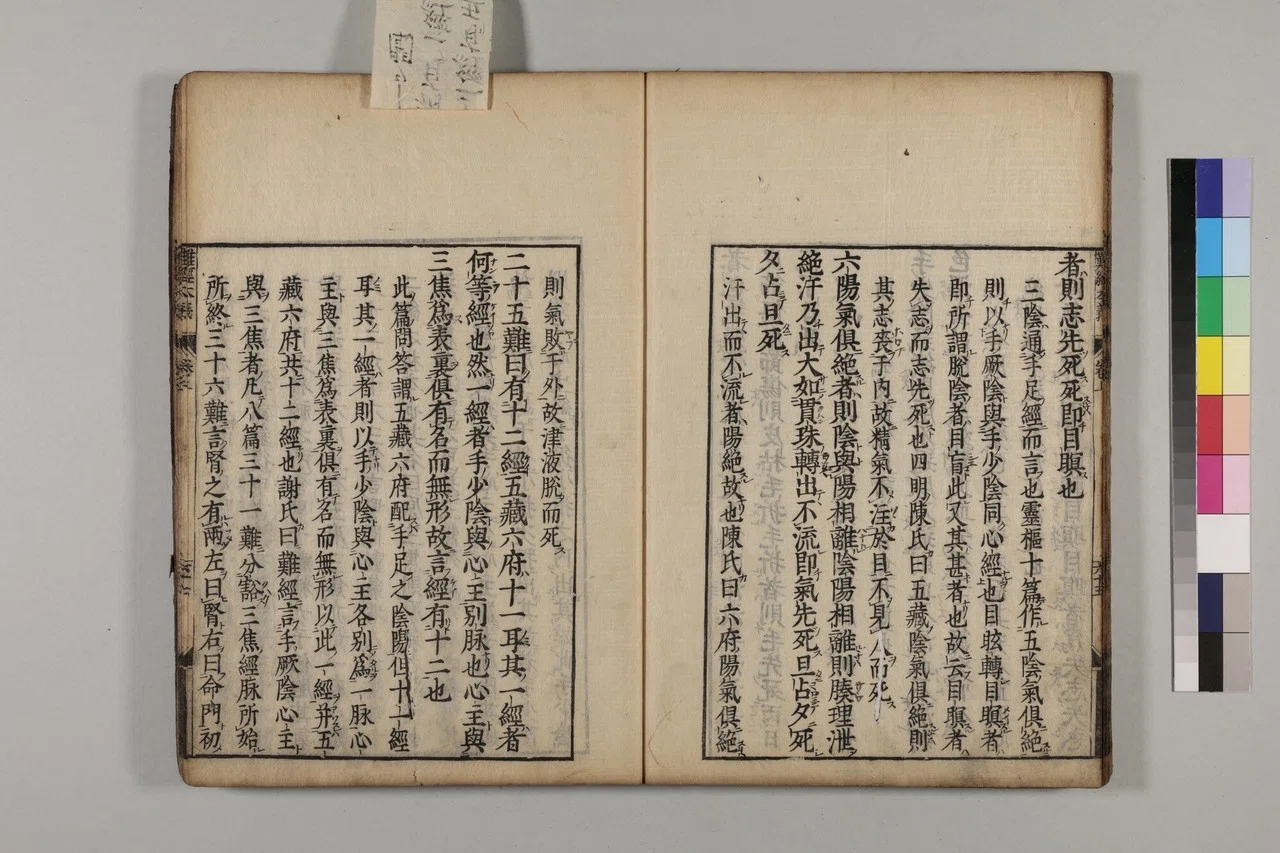 者則志先死死即目瞑也
三陰通手足經而言也靈樞十篇作五陰氣俱絕
則以手厥陰與手少陰同心經也目眩轉目瞑者
即所謂脫陰者目盲此又其甚者也故云目瞑者
失志而志先死也四明陳氏曰五藏陰氣俱絕則
其志喪于內故精氣不注於目不見人而死
六陽氣俱絕者則陰與陽相離陰陽相離則腠理泄
絕汗乃出大如貫珠轉出不流即氣先死旦占夕死
夕占旦死
汗出而不流者陽絕故也陳氏曰六府陽氣俱絕
則氣敗于外故津液脫而死
二十五難曰有十二經五藏六府十一耳其一經者
何等經也然一經者手少陰與心主別脉也心主與
三焦爲表裏俱有名而無形故言經有十二也
此篇問答謂五藏六府配手足之陰陽但十一經
耳其一經者則以手少陰與心主各別爲一脉心
主與三焦爲表裏俱有名而無形以此一經并五
藏六府共十二經也謝氏曰難經言手厥陰心主
與三焦者凡八篇三十一難分豁三焦經脉所始
所終三十六難言腎之有兩左曰腎右曰命門初
難經本義